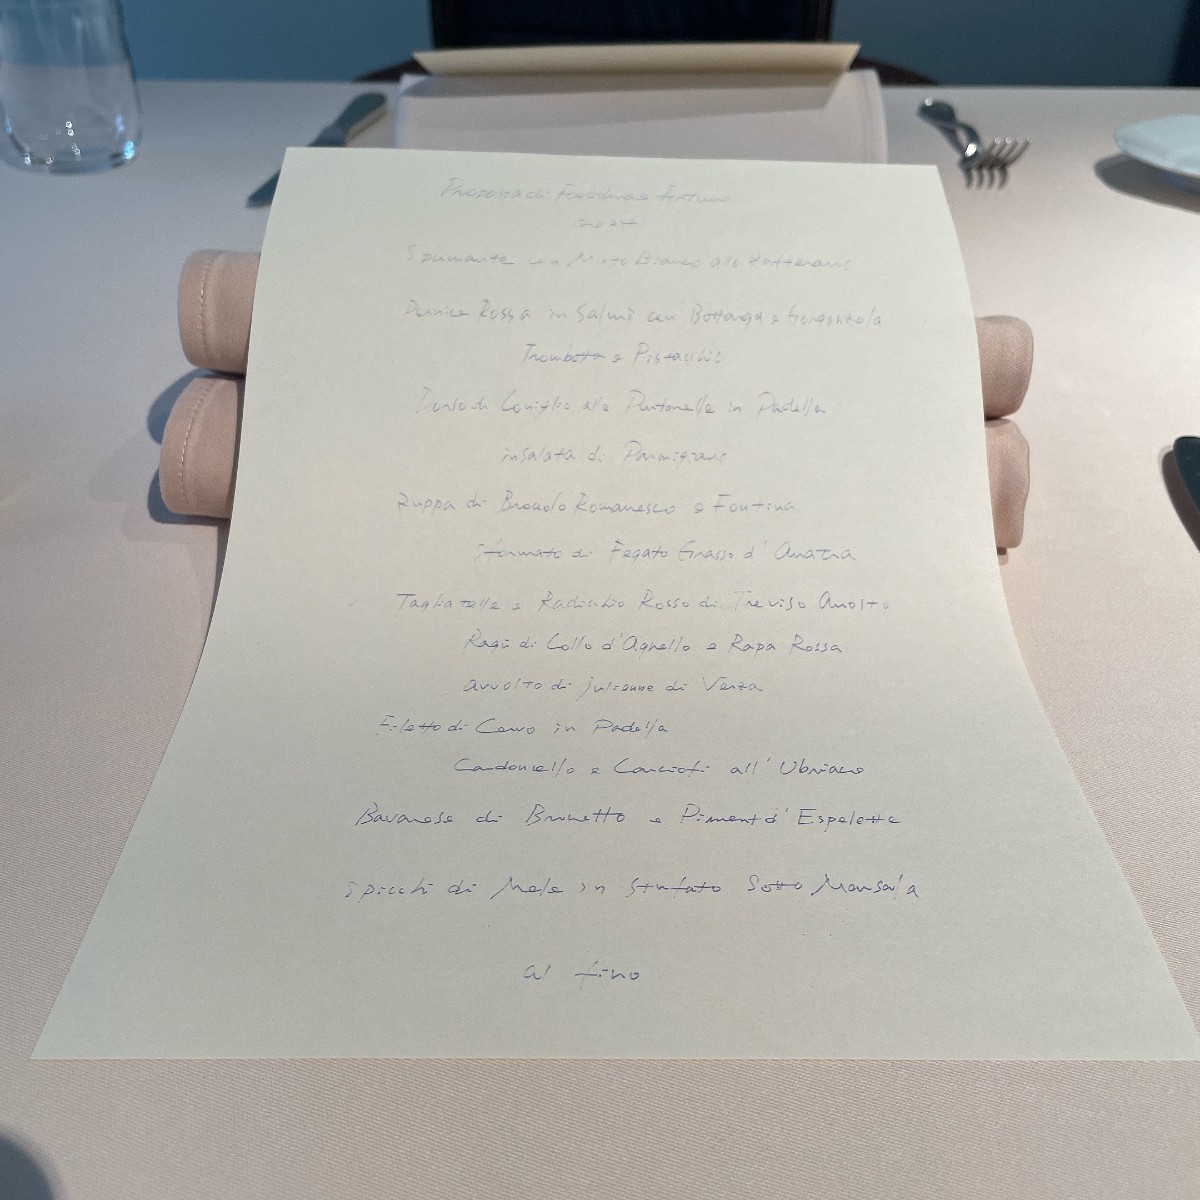 2024
Spumante con Mirto Bianco allo Zafferano
Pernice Rossa in Salmì con Bottarga e Gorgonzola
Trombetta e Pistacchio
Dorso di Coniglio alle Puntarelle in Padella
insalata di Parmigiano
Zuppa di Broccolo Romanesco e Fontina
Sformato di Fegato Grasso d'Anatra
Tagliatelle e Radicchio Rosso di Treviso Arosto
Ragù di Collo d'Agnello e Rapa Rossa
avvolto di julienne di Verza
Filetto di Cervo in Padella
Cardoncello e Carciofi all'Ubriaco
Bavarese di Brunetto e Piment d'Espelette
Spicchi di Mele in Stufato Sotto Marsala
al fino